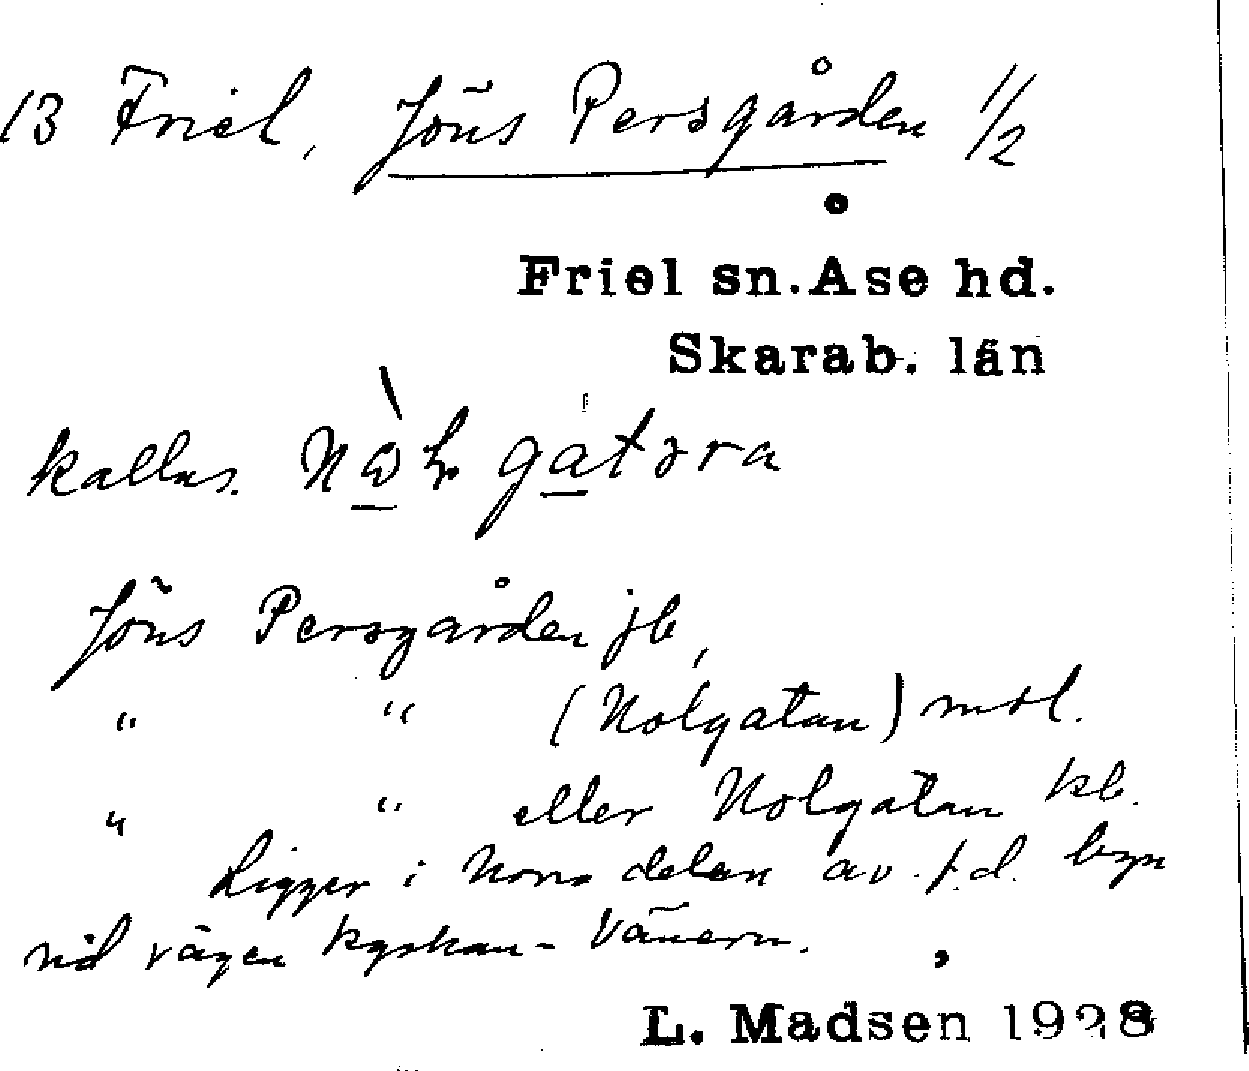 13 Friel, Jöns Persgården 1/2
Friel sn. Åse hd.
Skarab. län
kallas. gatɜra
Jöns Persgården jb,
" " (Nolgatan) mtl.
" " eller Nolgatan kb.
Ligger i norra delen av f.d. byn
vid vägen kyrkan - Vänern.
L. Madsen 1928